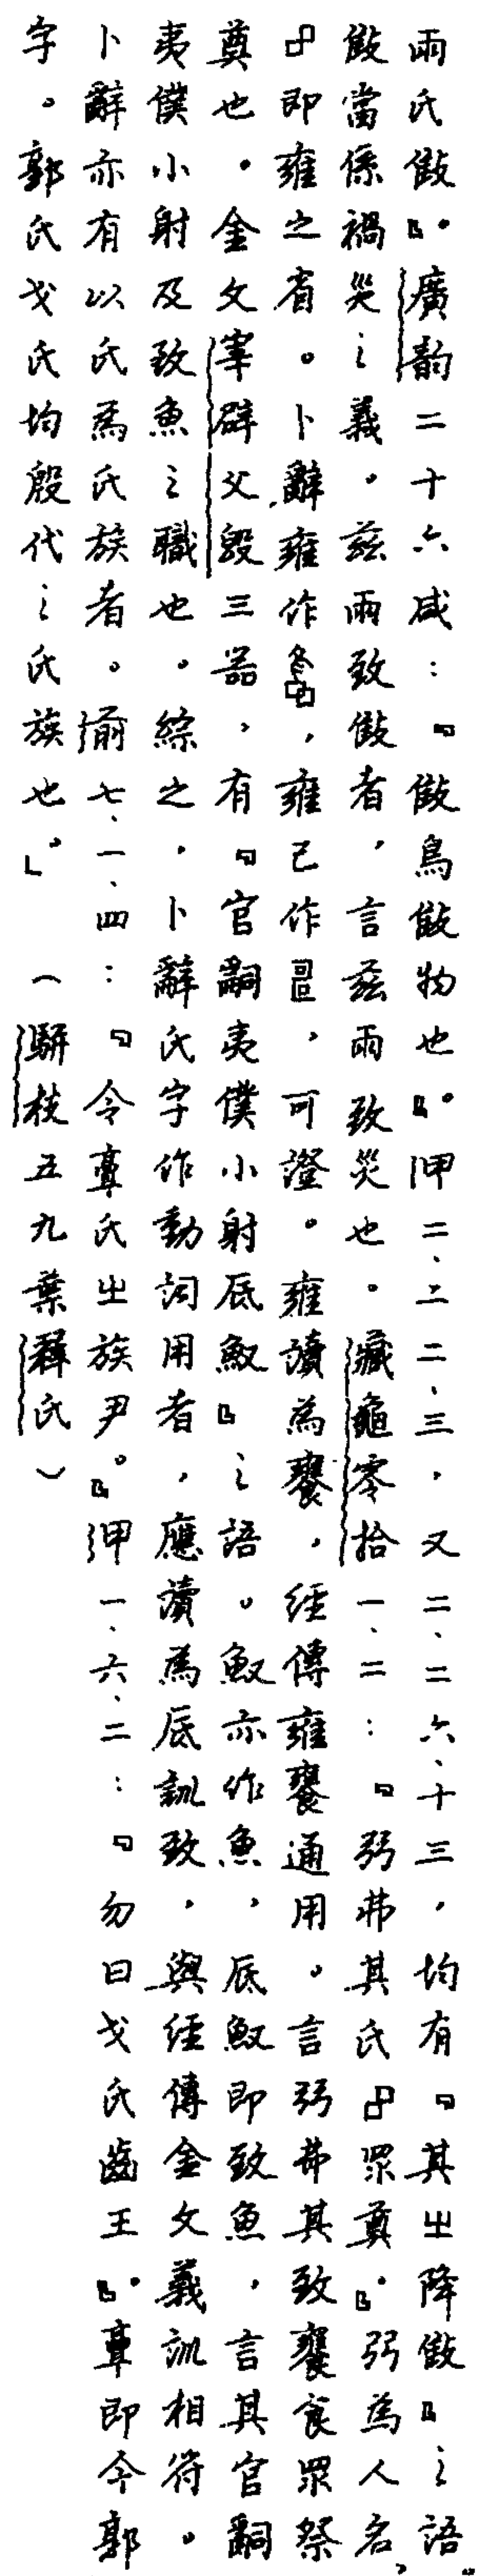 雨氏𢿱』。廣韵二十六咸：『𢿱鳥𢿱物也』。鉀二、二二、三，又二、二六、十三，均有『其㞢降𢿱』之語。
𢿱當係禍災之義。茲雨致𢿱者，言茲雨致災也。藏龜零拾一、二：『弜弗其氏吕眔奠』。弜為人名，
吕即雍之省。卜辭雍作，雍己作，可證。雍讀為饔，經傳雍饔通用。言弜弗其致饔食眔祭
奠也。金文宰辟父𣪘三器，有『官嗣夷僕小射底𩵎』之語。𩵎亦作魚，底𩵎即致魚，言其官嗣
夷僕小射及致魚之職也。綜之，卜辭氏字作動詞用者，應讀為底訓致，與經傳金文義訓相符。
卜辭亦有以氏為氏族者。前七、一、四：『令𩫏氏㞢族尹』。甲一、六、二：『勿曰戈氏齒王』。𩫏即今郭
字。郭氏戈氏均殷代之氏族也」。（駢枝五九葉釋氏）